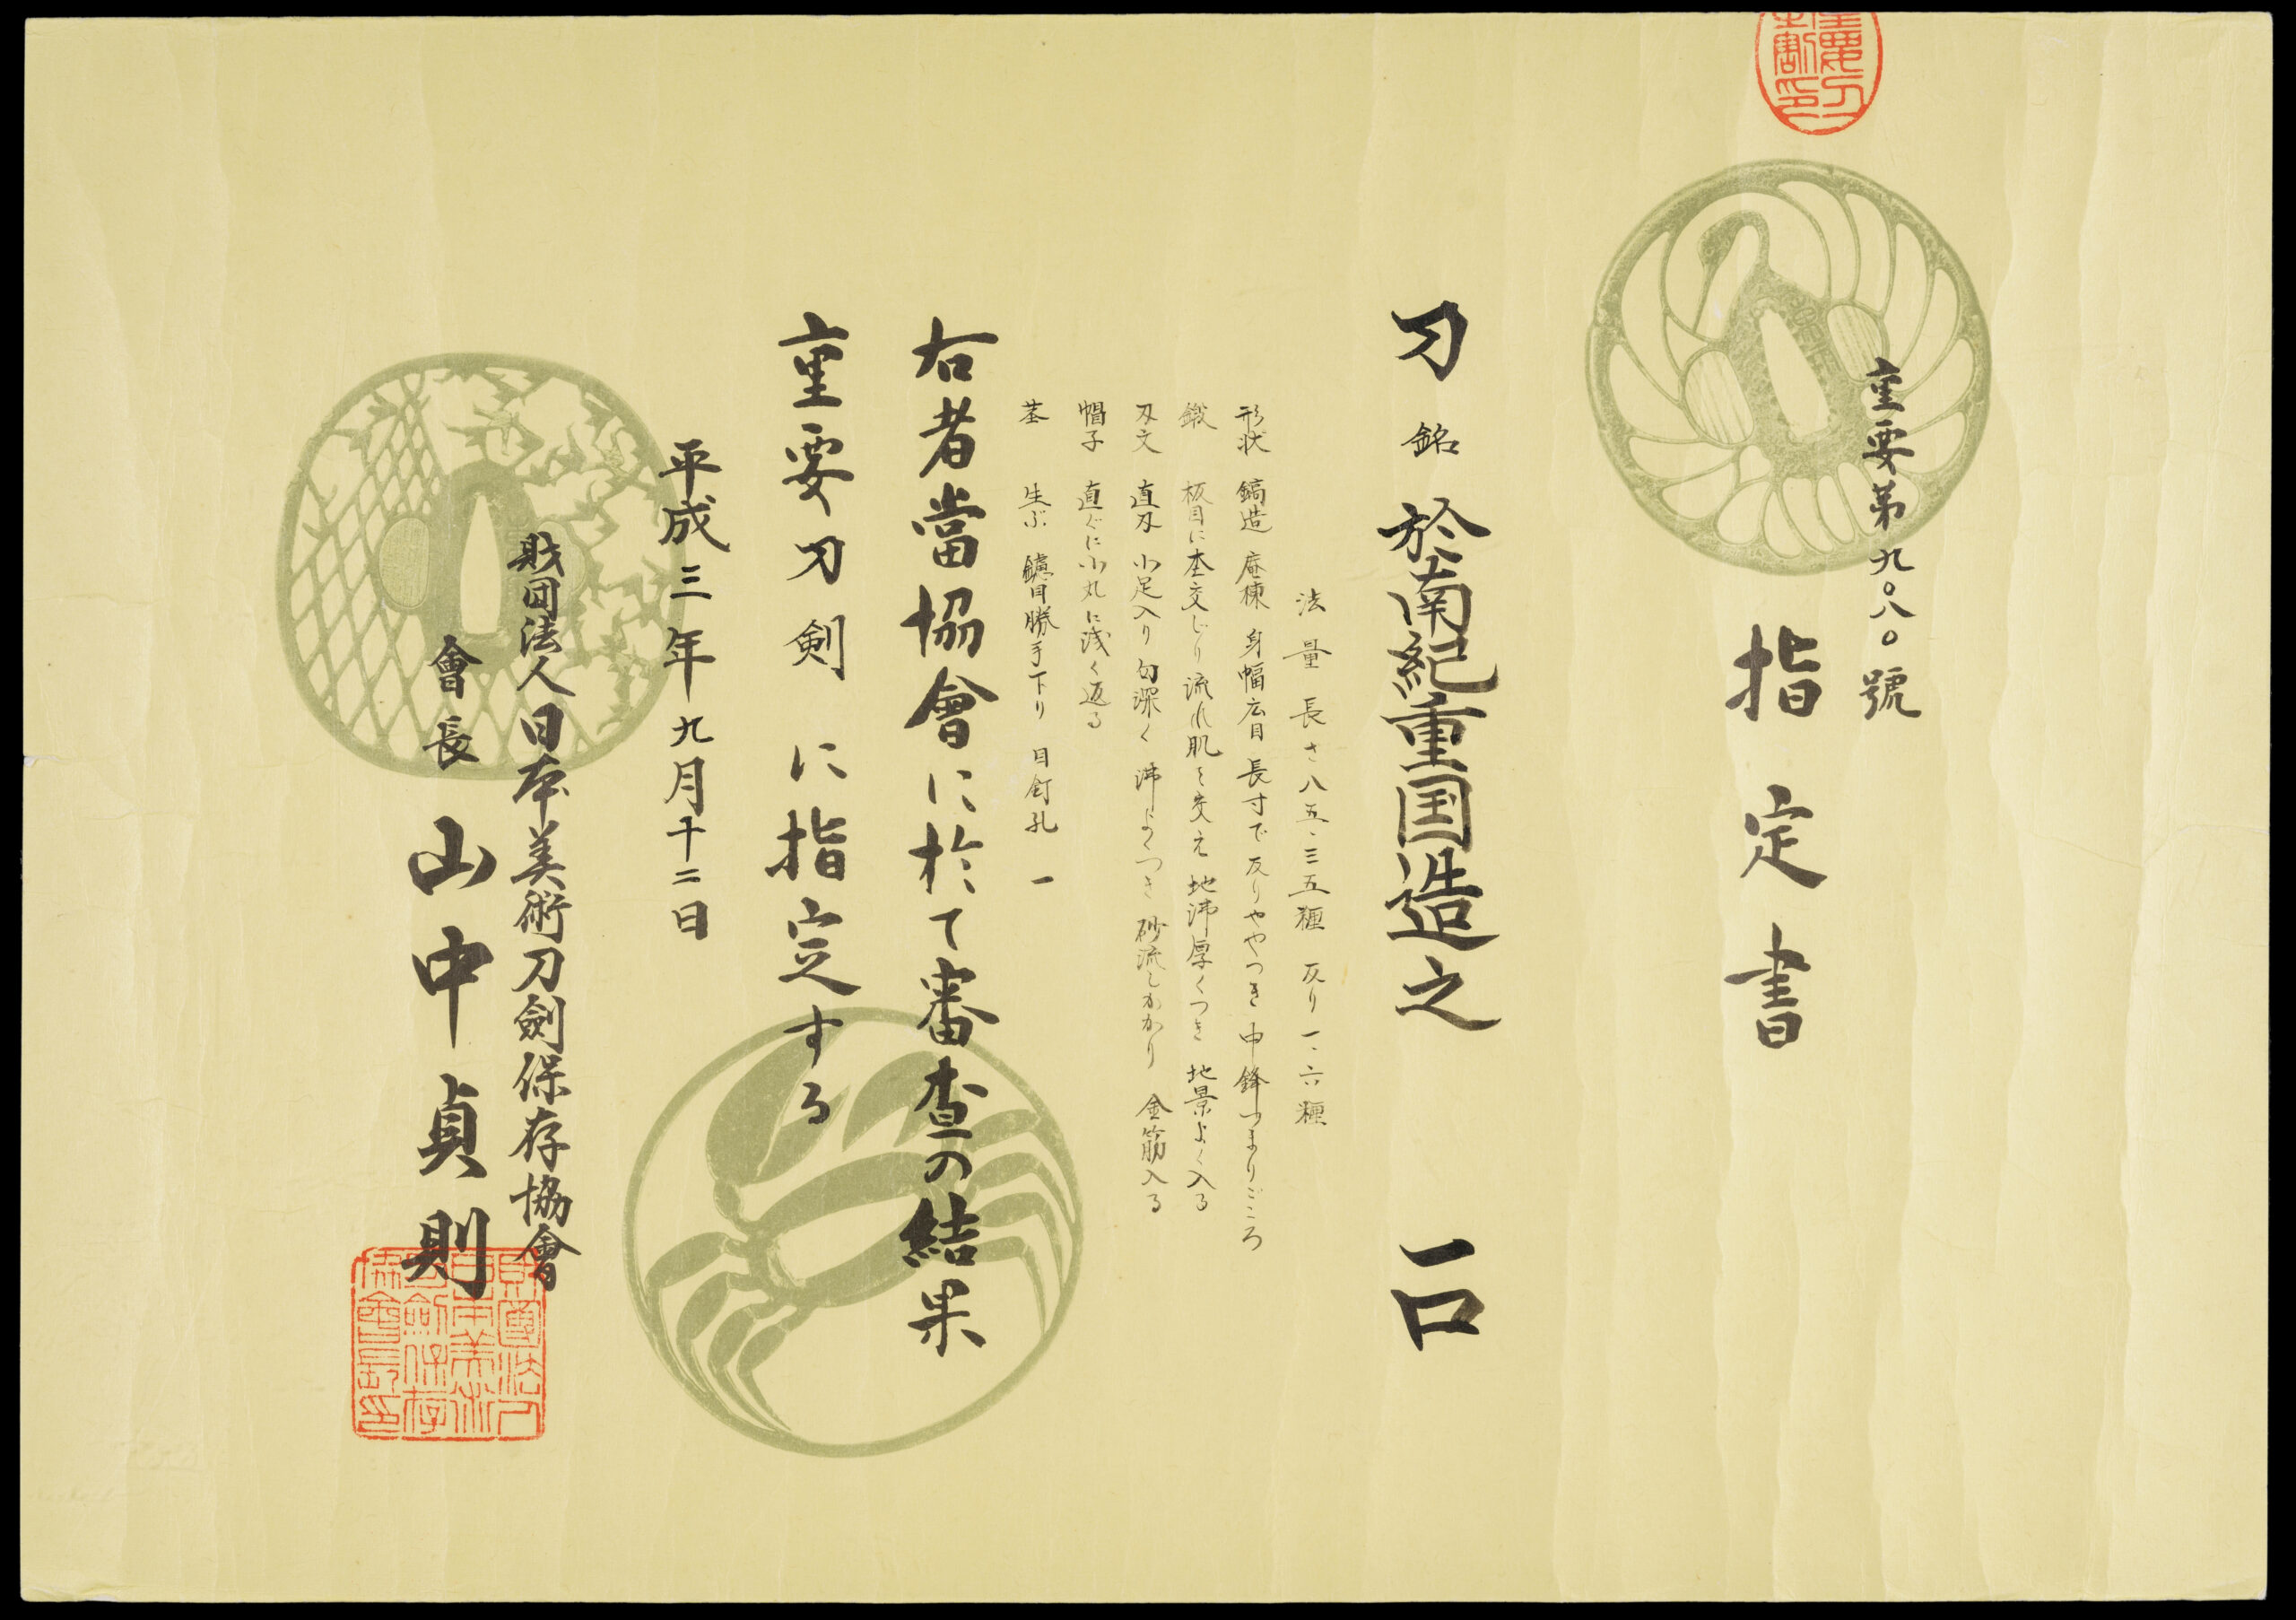 重要第九〇八〇號
指定書
刀 銘 於南紀重国造之 一口
法量 長さ八五・三五糎 反り一・六糎
形状 鎬造 庵棟 身幅広目 長寸で反りややつき 中鋒つまりごころ
鍛 板目に杢交じり 流れ肌を交え 地沸厚くつき 地景よく入る
刃文 直刃 小足入り 匂深く 沸よくつき 砂流しかかり 金筋入る
帽子 直ぐに小丸に浅く返る
茎 生ぶ 鑢目勝手下り 目釘孔一
右者當協會に於て審査の結果
重要刀剣に指定する
平成三年九月十二日
財団法人日本美術刀劍保存協會
會長 山中貞則
財團法人日本美術刀劍保存協會長印